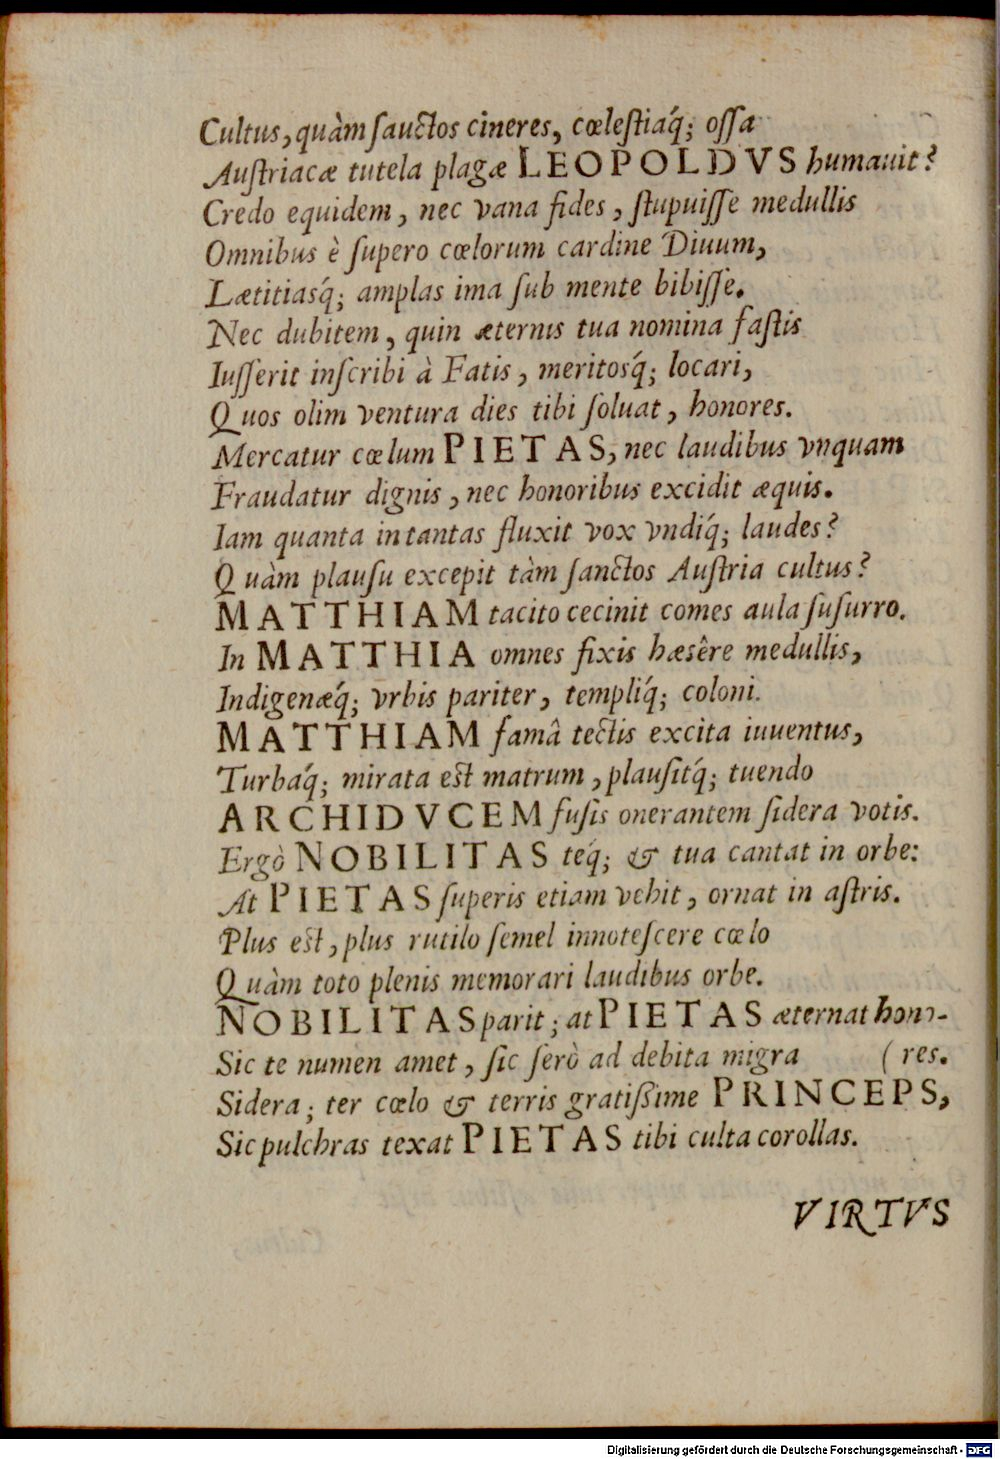 Cultus, quàm sauctos cineres, cœlestiaq́; ossa
Austriacæ tutela plagæ LEOPOLDVS humauit?
Credo equidem, nec vana fides, stupuisse medullis
Omnibus è supero cœlorum cardine Diuum,
Lætitiasq́; amplas ima sub mente bibisse.
Nec dubitem, quin æternis tua nomina fastis
Iusserit inscribi à Fatis, meritosq́; locari,
Quos olim ventura dies tibi soluat, honores.
Mercatur cœlum PIETAS, nec laudibus vnquam
Fraudatur dignis, nec honoribus excidit æquis.
Iam quanta in tantas fluxit vox vndiq́; laudes?
Quàm plausu excepit tàm sanctos Austria cultus?
MATTHIAM tacito cecinit comes aula susurro.
In MATTHIA omnes fixis hæsêre medullis,
Indigenæq́; vrbis pariter, templiq́; coloni.
MATTHIAM famâ tectis excita iuuentus,
Turbaq́; mirata est matrum, plausitq́; tuendo
ARCHIDVCEM fusis onerantem sidera votis.
Ergò NOBILITAS teq́; & tua cantat in orbe:
At PIETAS superis etiam vehit, ornat in astris.
Plus est, plus rutilo semel innotescere cœlo
Quàm toto plenis memorari laudibus orbe.
NOBILITAS parit; at PIETAS æternat hono-
Sic te numen amet, sic serò ad debita migra (res.
Sidera; ter cœlo & terris gratissime PRINCEPS,
Sic pulchras texat PIETAS tibi culta corollas.
VIRTVS
Digitalisierung gefördert durch die Deutsche Forschungsgemeinschaft - DFG